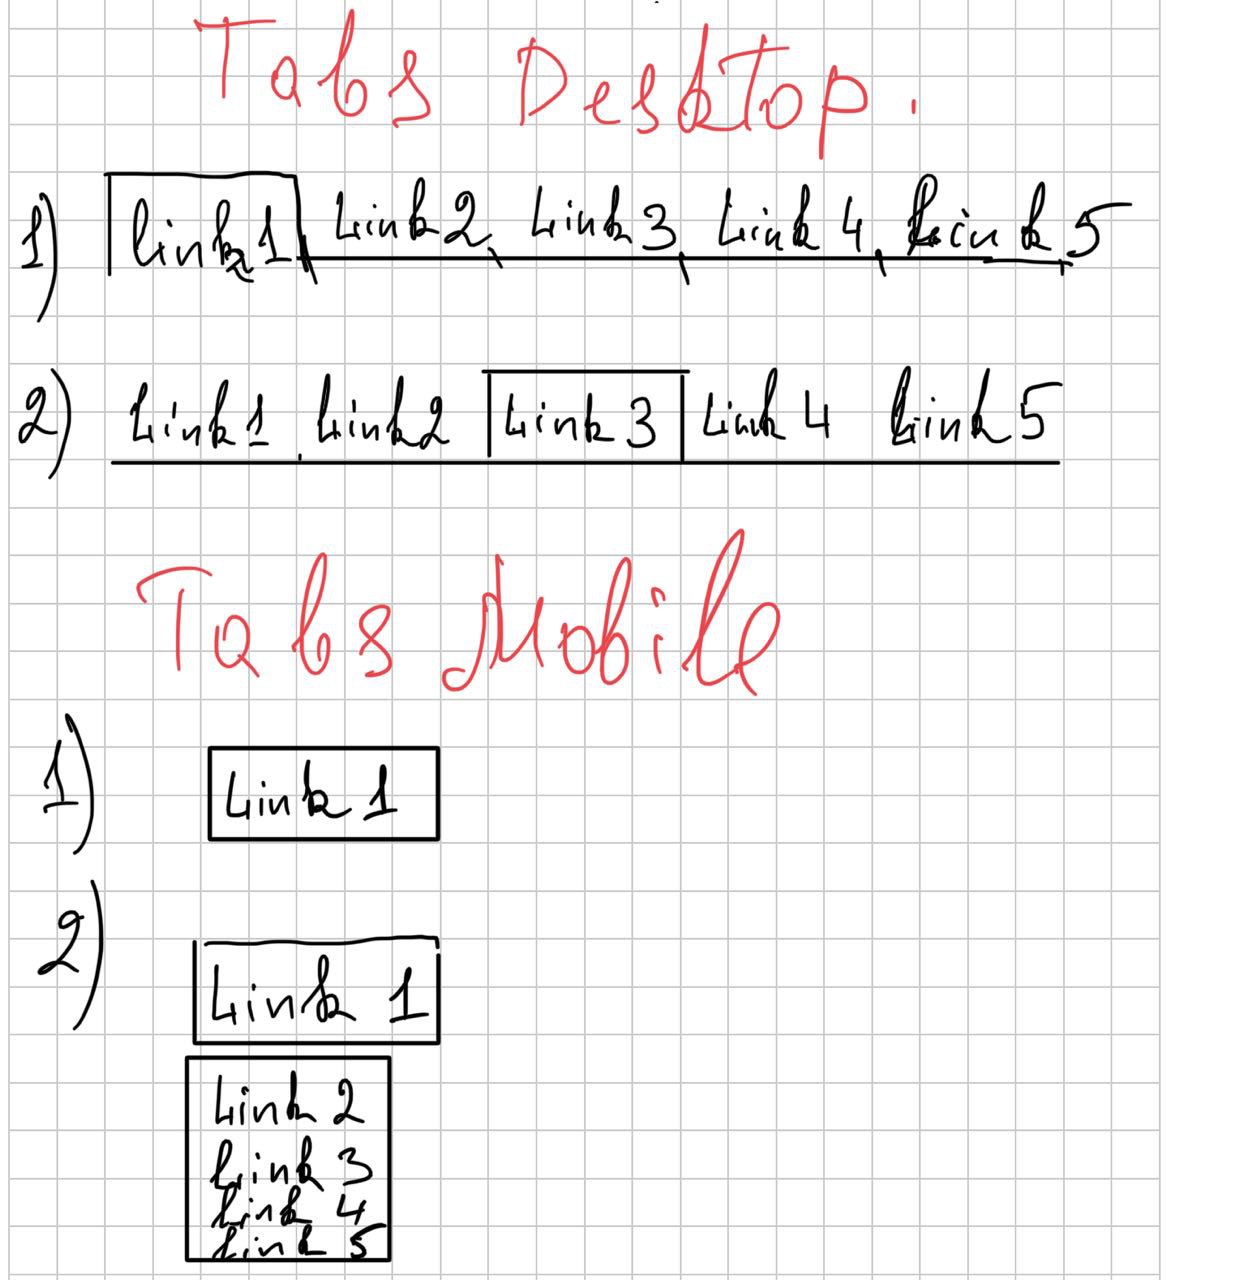 Tabs Desktop.
1) Link 1 Link 2 Link 3 Link 4 Link 5
2) Link 1 Link 2 Link 3 Link 4 Link 5
Tabs Mobile
1) Link 1
2) Link 1
Link 2
Link 3
Link 4
Link 5